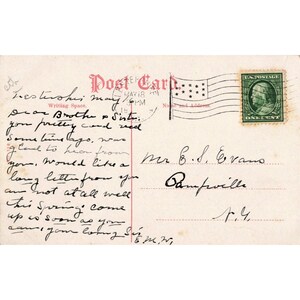 Post Card
Writing Space
Name and Address
U.S. POSTAGE
ONE CENT
May
Dear Brother & Sister
your pretty card recd
sometime ago, was
glad to hear from
you, would like a
long letter from you
am not at all well
this Spring come
up as soon as you
can, your loving Sis
E.M.W.
Mr E. S. Evans
N.Y.